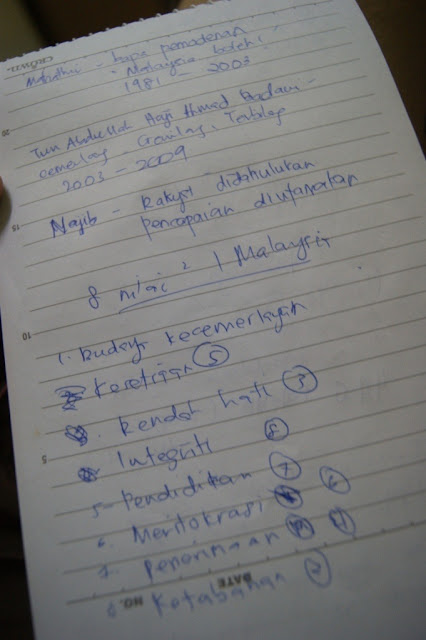 Mahathir - bapa pemodenan
"Malaysia boleh"
1981 - 2003
20
Tun Abdullah Haji Ahmad Badawi -
cemerlang Gemilang, Terbilang
2003 - 2009
15
Najib - Rakyat didahulukan
pencapaian diutamakan
8 nilai² 1 Malaysia
10
1. Budaya kecemerlangan
Kesetiaan (5)
Rendah hati (3)
5
Integriti (8)
5- Pendidikan (7)
6. Meritokrasi (6)
7. penerimaan (4)
8 Ketabahan (2)
NO. DATE